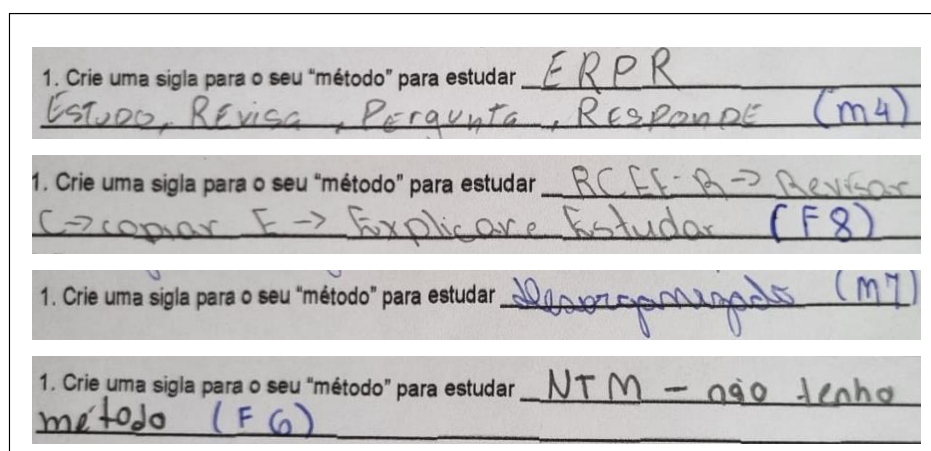 1. Crie uma sigla para o seu "método" para estudar ERPR
Estudo, REvisa, PErgunta, RESPonDE (m4)
1. Crie uma sigla para o seu "método" para estudar RCEE-R-> Revisar
C->copiar E -> Explicar e Estudar (F8)
1. Crie uma sigla para o seu "método" para estudar Desorganizado (m7)
1. Crie uma sigla para o seu "método" para estudar NTM - não tenho
método (F6)